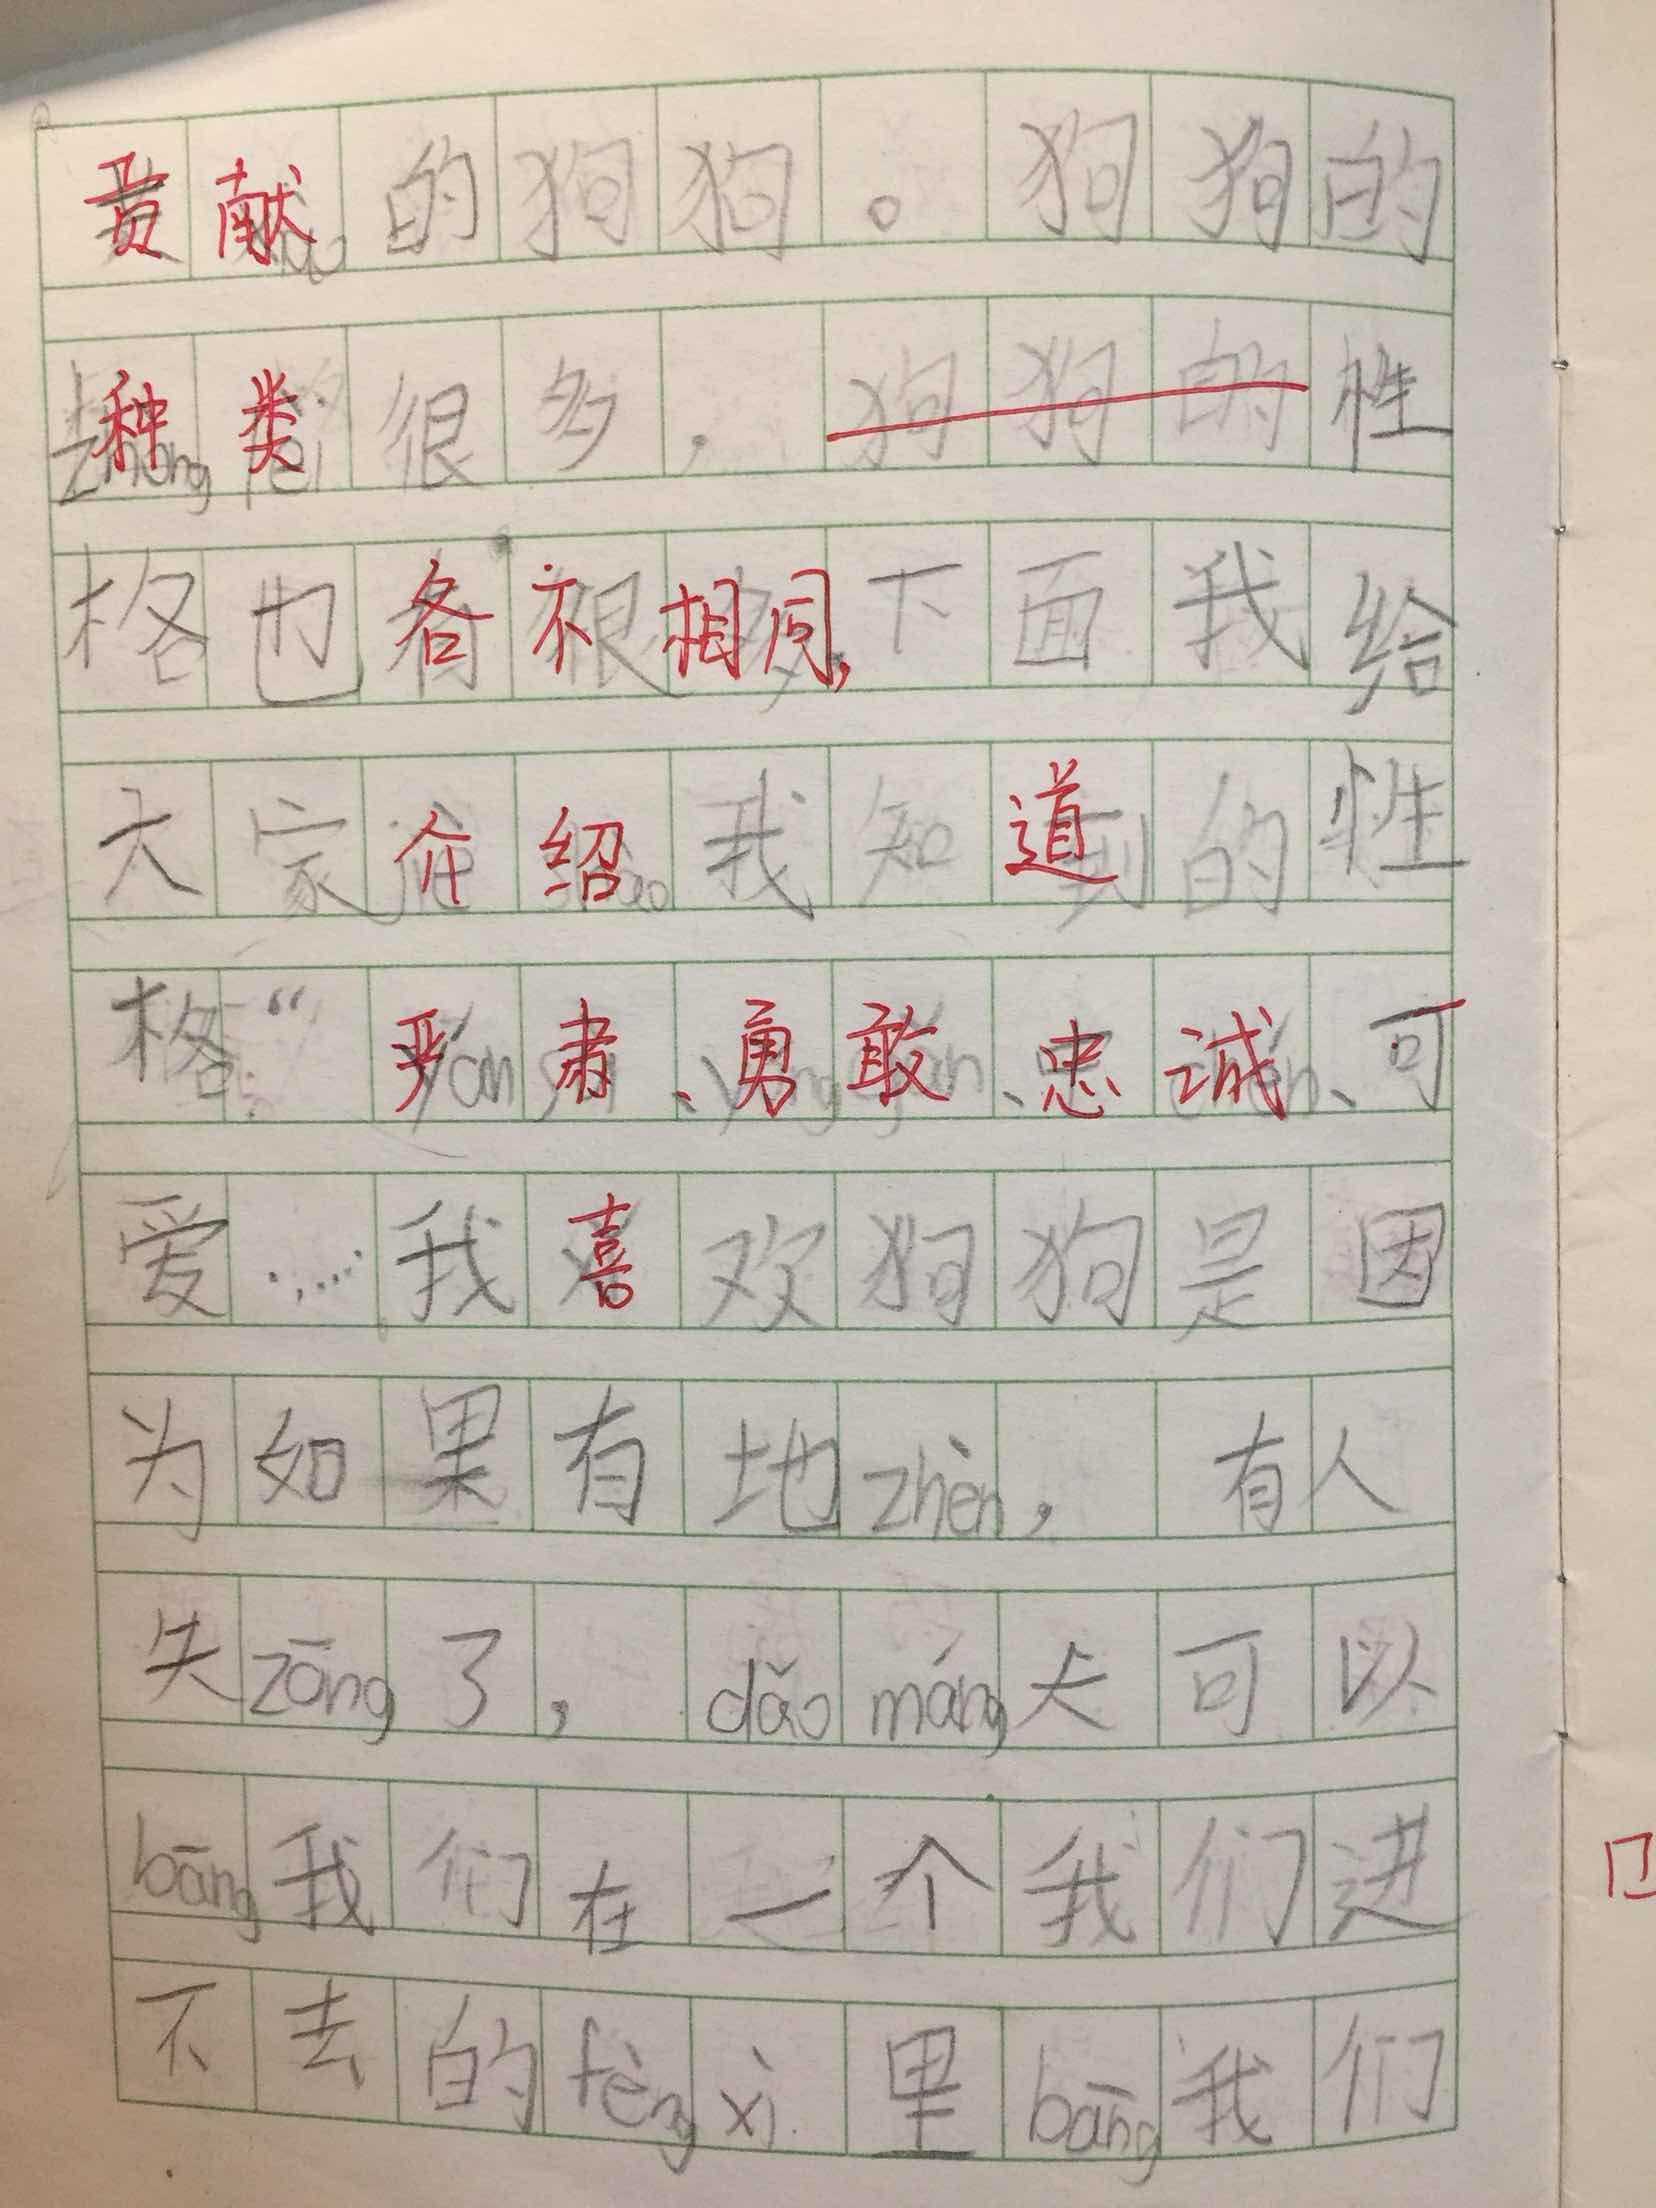 贡献的狗狗。狗狗的
种类很多，狗狗的性
格也各不相同，下面我给
大家介绍我知道的性
格：“严肃、勇敢、忠诚、可
爱……我喜欢狗狗是因
为如果有地zhèn，有人
失zōng了，dǎo máng犬可以
bāng我们在一个我们进
不去的fèng xì里bāng我们